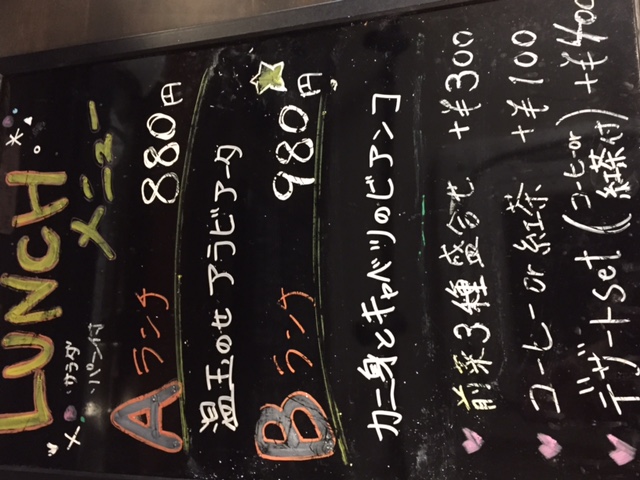 LUNCH
メニュー
サラダ
パン付
Aランチ 880円
温玉のせ アラビアータ
Bランチ 980円
カニ身とキャベツのビアンコ
前菜3種盛合せ +¥300
コーヒー or 紅茶 +¥100
デザートset (コーヒー or 紅茶付) +¥400